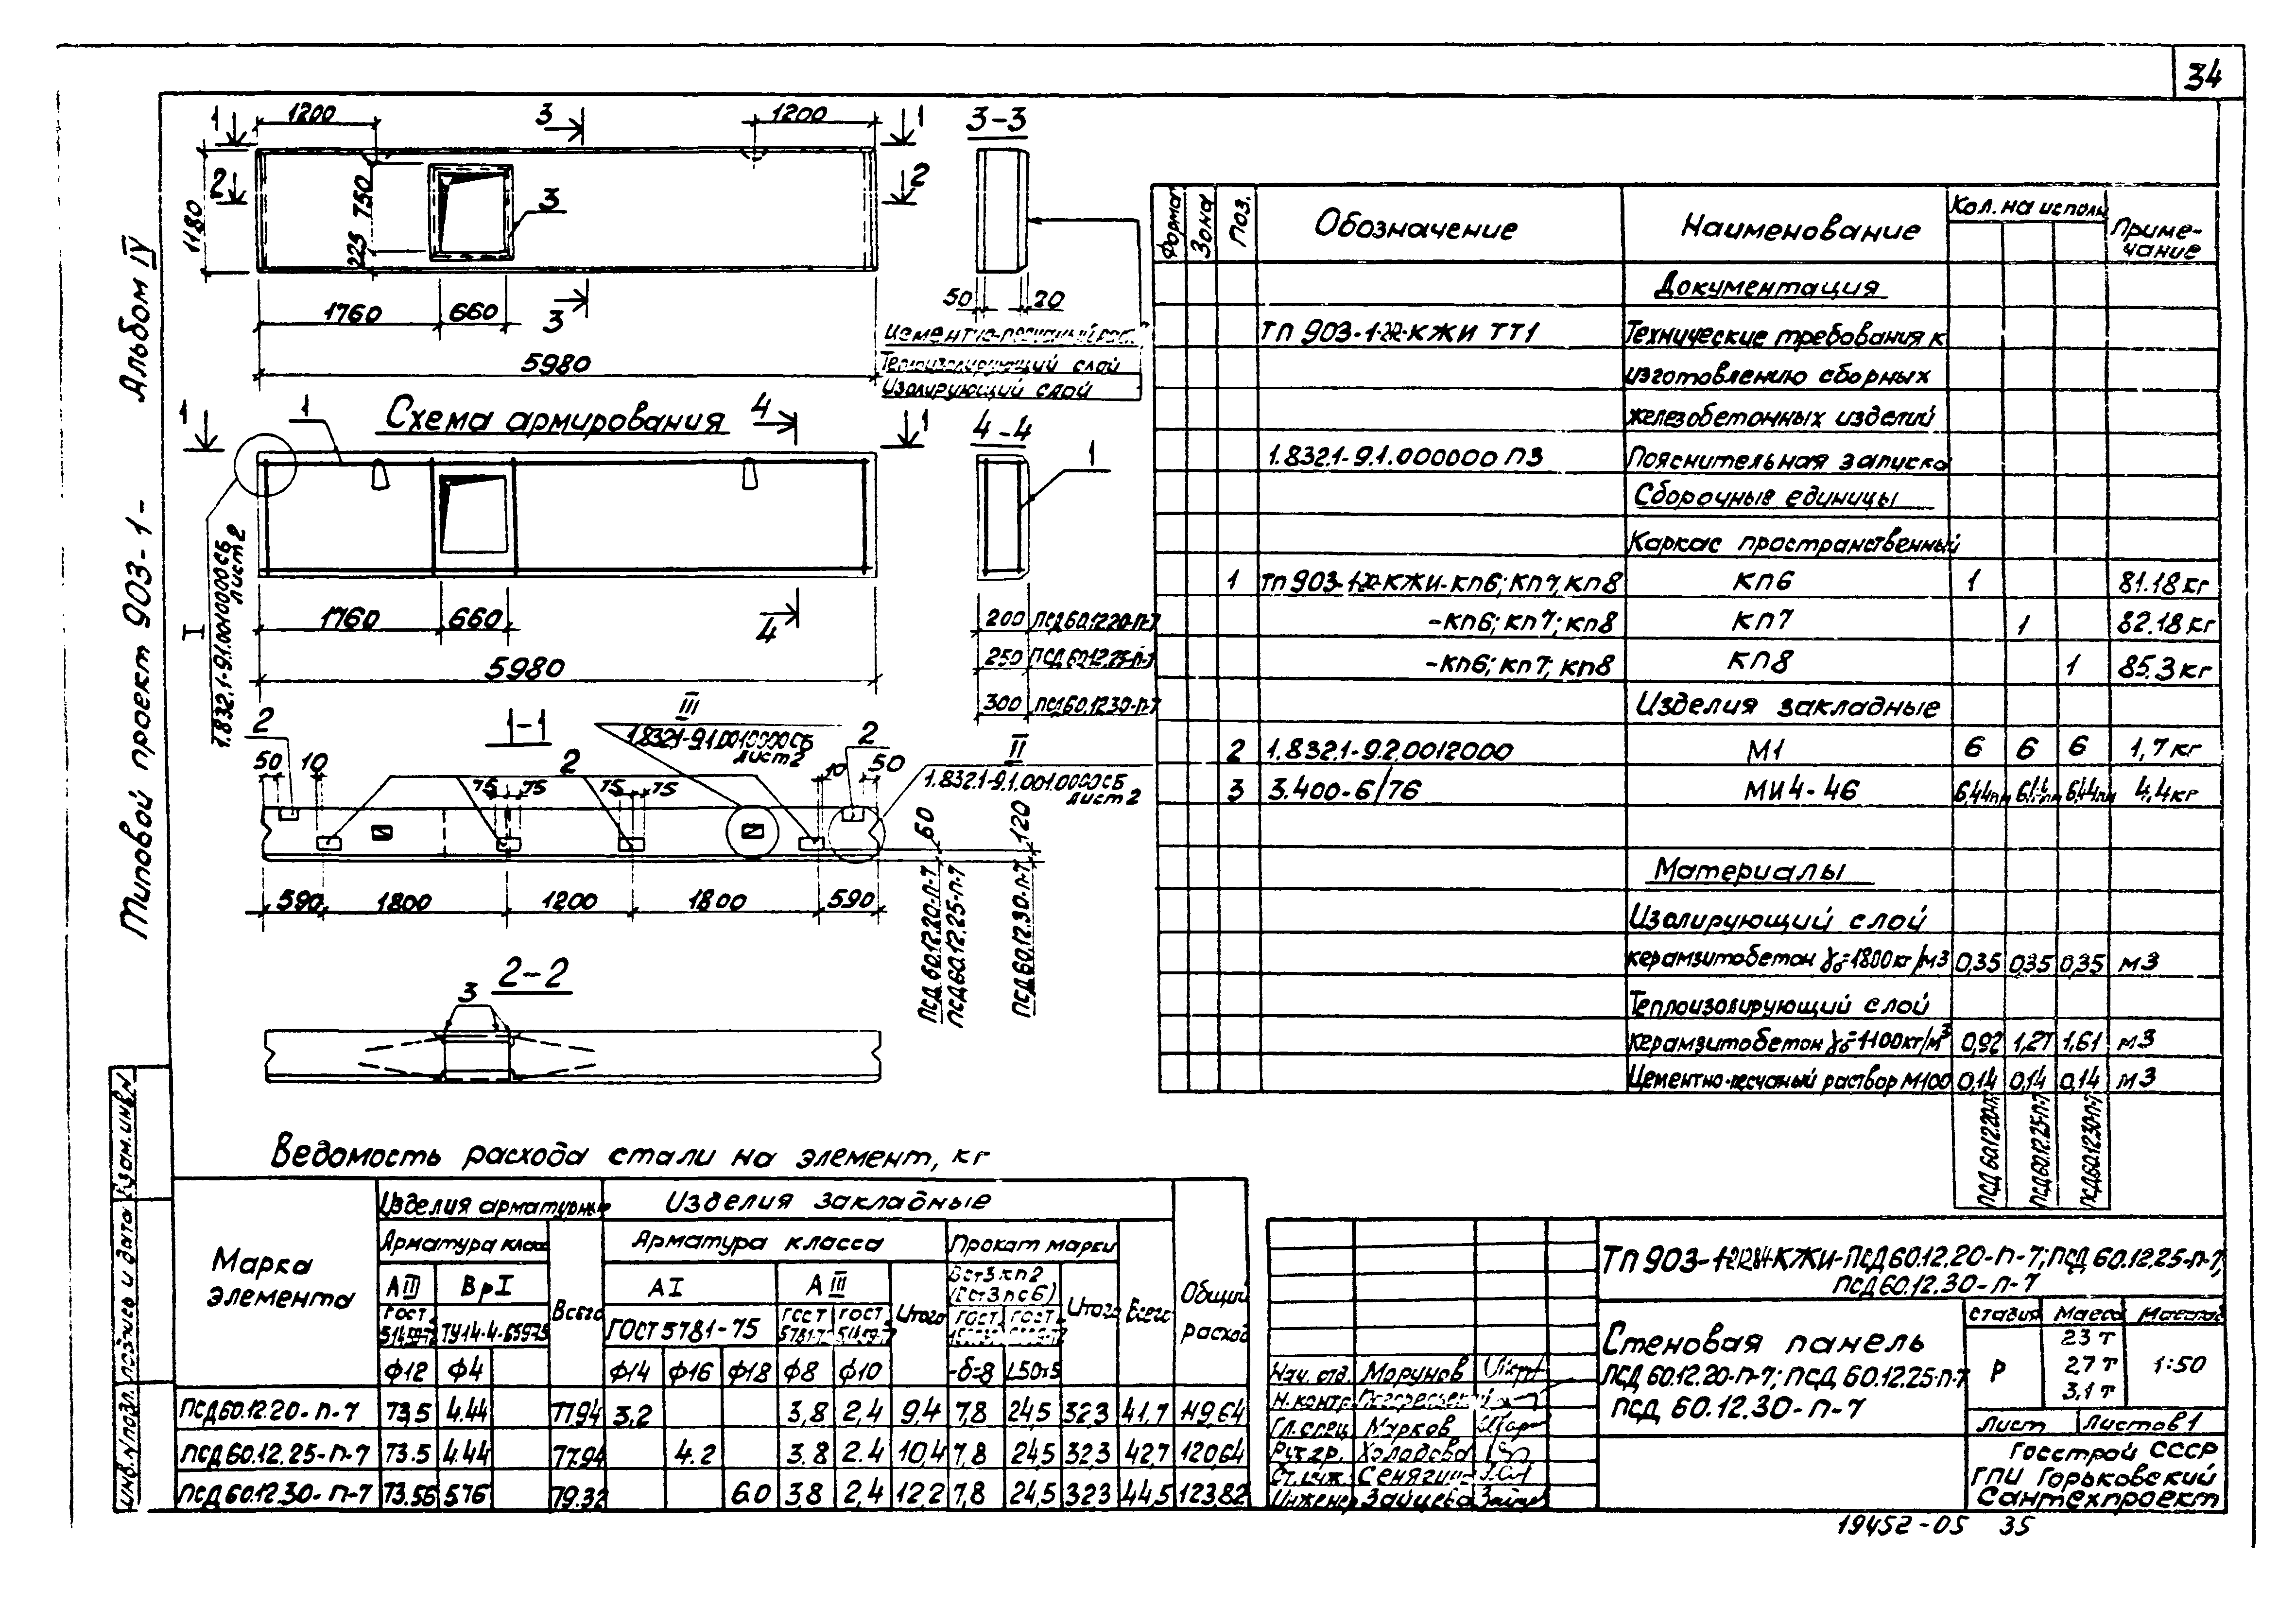 34
Типовой проект 903-1- Альбом IV
1200
1200
1
3
1
3-3
2
2
750
225
1180
3
1760
660
3
5980
50
20
Теплоизолирующий слой
Изолирующий слой
Схема армирования
1
1
4
1
4-4
1
I
1.832.1-9.1.0010000СБ
лист 2
1760
660
4
5980
200 ПСД60.12.20-П-7
250 ПСД60.12.25-П-7
300 ПСД60.12.30-П-7
1-1
2
III
1.832.1-9.1.0010000СБ
лист 2
2
II
1.832.1-9.1.001.0000СБ
лист 2
50
10
2
75
75
75
75
10
50
60
120
590
1800
1200
1800
590
ПСД60.12.20-П-7
ПСД60.12.25-П-7
ПСД60.12.30-П-7
2-2
3
Форма Зона Поз. Обозначение Наименование Кол. на исполн Приме-
чание
Документация
ТП 903-1- КЖИ ТТ1 Технические требования к
изготовлению сборных
железобетонных изделий
1.832.1-9.1.000000 ПЗ Пояснительная записка
Сборочные единицы
Каркас пространственный
1 ТП 903-1- КЖИ-КП6; КП7, КП8 КП6 1 81.18 кг
-КП6; КП7; КП8 КП7 1 82.18 кг
-КП6; КП7; КП8 КП8 1 85.3 кг
Изделия закладные
2 1.832.1-9.2.0012000 М1 6 6 6 1,7 кг
3 3.400-6/76 МИ4-46 6,44п.м 6,44п.м 6,44п.м 4,4 кг
Материалы
Изолирующий слой
керамзитобетон γ₀=1800 кг/м3 0,35 0,35 0,35 м3
Теплоизолирующий слой
керамзитобетон γ₀=1100 кг/м3 0,92 1,27 1,61 м3
Цементно-песчаный раствор М100 0,14 0,14 0,14 м3
ПСД60.12.20-П-7
ПСД60.12.25-П-7
ПСД60.12.30-П-7
Ведомость расхода стали на элемент, кг
Марка элемента
Изделия арматурные
Изделия закладные
Общий расход
Арматура класса
Всего
Арматура класса
Прокат марки
Всего
АIII ВрI АI АIII Итого Вст3кп2
(Вст3пс6) Итого
ТУ14-4-659-75 ГОСТ 5781-75
ф12 ф4 ф14 ф16 ф18 ф8 ф10 -δ=8 L50х5
ПСД60.12.20-П-7 73.5 4.44 77.94 3.2 3,8 2,4 9,4 7,8 24,5 32,3 41,7 119,64
ПСД60.12.25-П-7 73.5 4.44 77.94 4.2 3.8 2.4 10,4 7,8 24,5 32,3 42,7 120,64
ПСД60.12.30-П-7 73.56 5.76 79.32 6.0 3,8 2,4 12,2 7,8 24,5 32,3 44,5 123,82
ТП 903-1- КЖИ-ПСД60.12.20-П-7; ПСД60.12.25-П-7,
ПСД60.12.30-П-7
Стеновая панель
ПСД60.12.20-П-7; ПСД60.12.25-П-7
ПСД 60.12.30-П-7
Стадия Масса Масштаб
Р
2,3 т
2,7 т
3,1 т
1:50
Лист Листов 1
Госстрой СССР
ГПИ Горьковский
Сантехпроект
Нач. отд. Морунов
Н. контр.
Гл. спец. Марков
Рук. гр. Холодова
Ст. инж.
Инженер Зайцева
Взам. инв. N
Подпись и дата
Инв. N подл.
19452-05 35